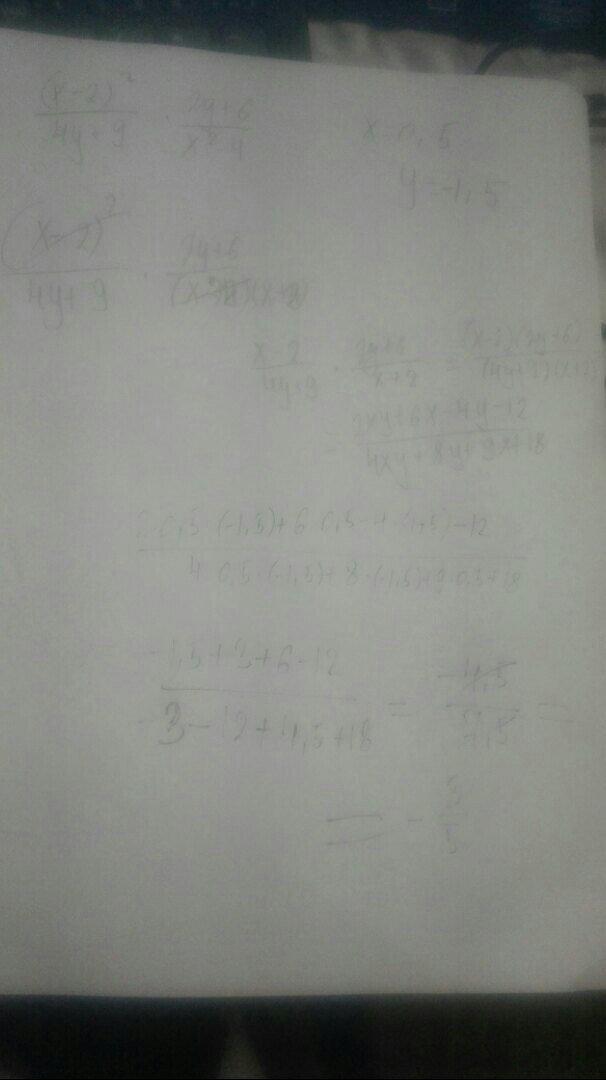 (x-2)²/4y+9 · 2y+6/x²-4 x=0,5
y=-1,5
(x-2)²/4y+9 · 2y+6/(x-2)(x+2)
x-2/4y+9 · 2y+6/x+2 = (x-2)(2y+6)/(4y+9)(x+2)
= 2xy+6x-4y-12/4xy+8y+9x+18
2·0,5·(-1,5)+6·0,5-4·(-1,5)-12/4·0,5·(-1,5)+8·(-1,5)+9·0,5+18
-1,5+3+6-12/-3-12+4,5+18 = -4,5/7,5 =
= -3/5